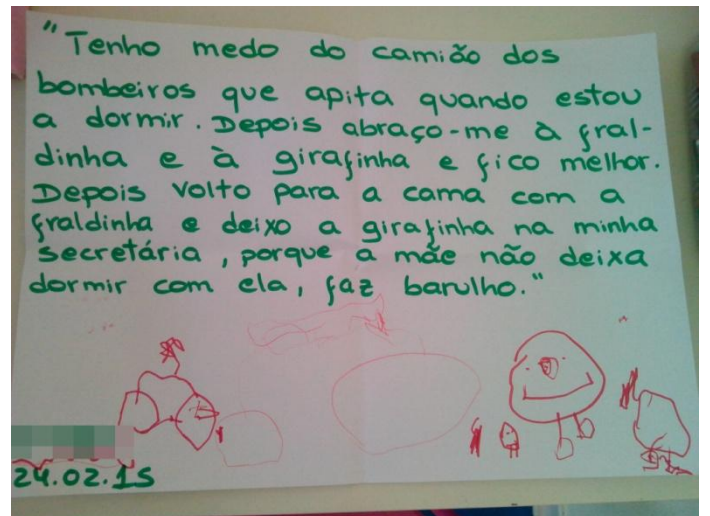 "Tenho medo do camião dos
bombeiros que apita quando estou
a dormir. Depois abraço-me à fral-
dinha e à girafinha e fico melhor.
Depois volto para a cama com a
fraldinha e deixo a girafinha na minha
secretária, porque a mãe não deixa
dormir com ela, faz barulho."
24.02.15